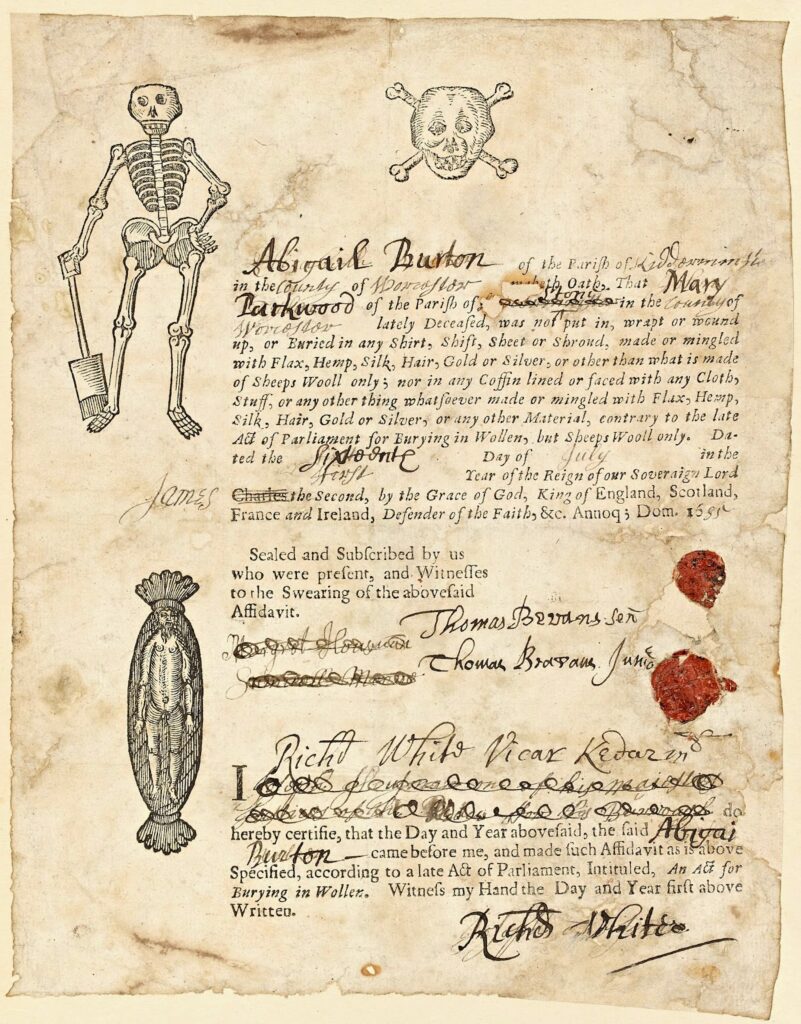 Abigail Burton of the Parish of
in the County of Worcester Oath, That Mary
Parkwood of the Parish of in the County of
Worcester lately Deceased, was not put in, wrapt or wound
up, or Buried in any Shirt, Shift, Sheet or Shroud, made or mingled
with Flax, Hemp, Silk, Hair, Gold or Silver, or other than what is made
of Sheeps Wooll only; nor in any Coffin lined or faced with any Cloth,
Stuff, or any other thing whatsoever made or mingled with Flax, Hemp,
Silk, Hair, Gold or Silver, or any other Material, contrary to the late
Act of Parliament for Burying in Wollen, but Sheeps Wooll only. Da-
ted the Sixteenth Day of July in the
first Year of the Reign of our Soveraign Lord
James Charles the Second, by the Grace of God, King of England, Scotland,
France and Ireland, Defender of the Faith, &c. Annoq; Dom.
Sealed and Subscribed by us
who were present, and Witnesses
to the Swearing of the abovesaid
Affidavit.
Thomas Bevans sen
Thomas Junr
Richd White Vicar
I
do
hereby certifie, that the Day and Year abovesaid, the said Abigal
Burton came before me, and made such Affidavit as is above
Specified, according to a late Act of Parliament, Intituled, An Act for
Burying in Wollen. Witness my Hand the Day and Year first above
Written.
Richd White